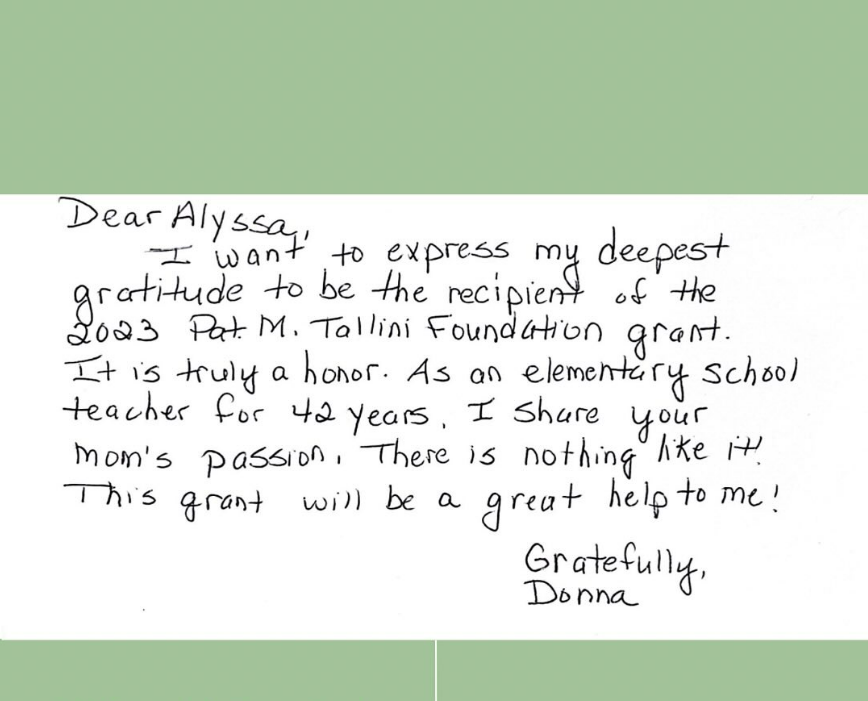 Dear Alyssa,
I want to express my deepest
gratitude to be the recipient of the
2023 Pat M. Tallini Foundation grant.
It is truly a honor. As an elementary school
teacher for 42 years, I share your
mom's passion. There is nothing like it!
This grant will be a great help to me!
Gratefully,
Donna